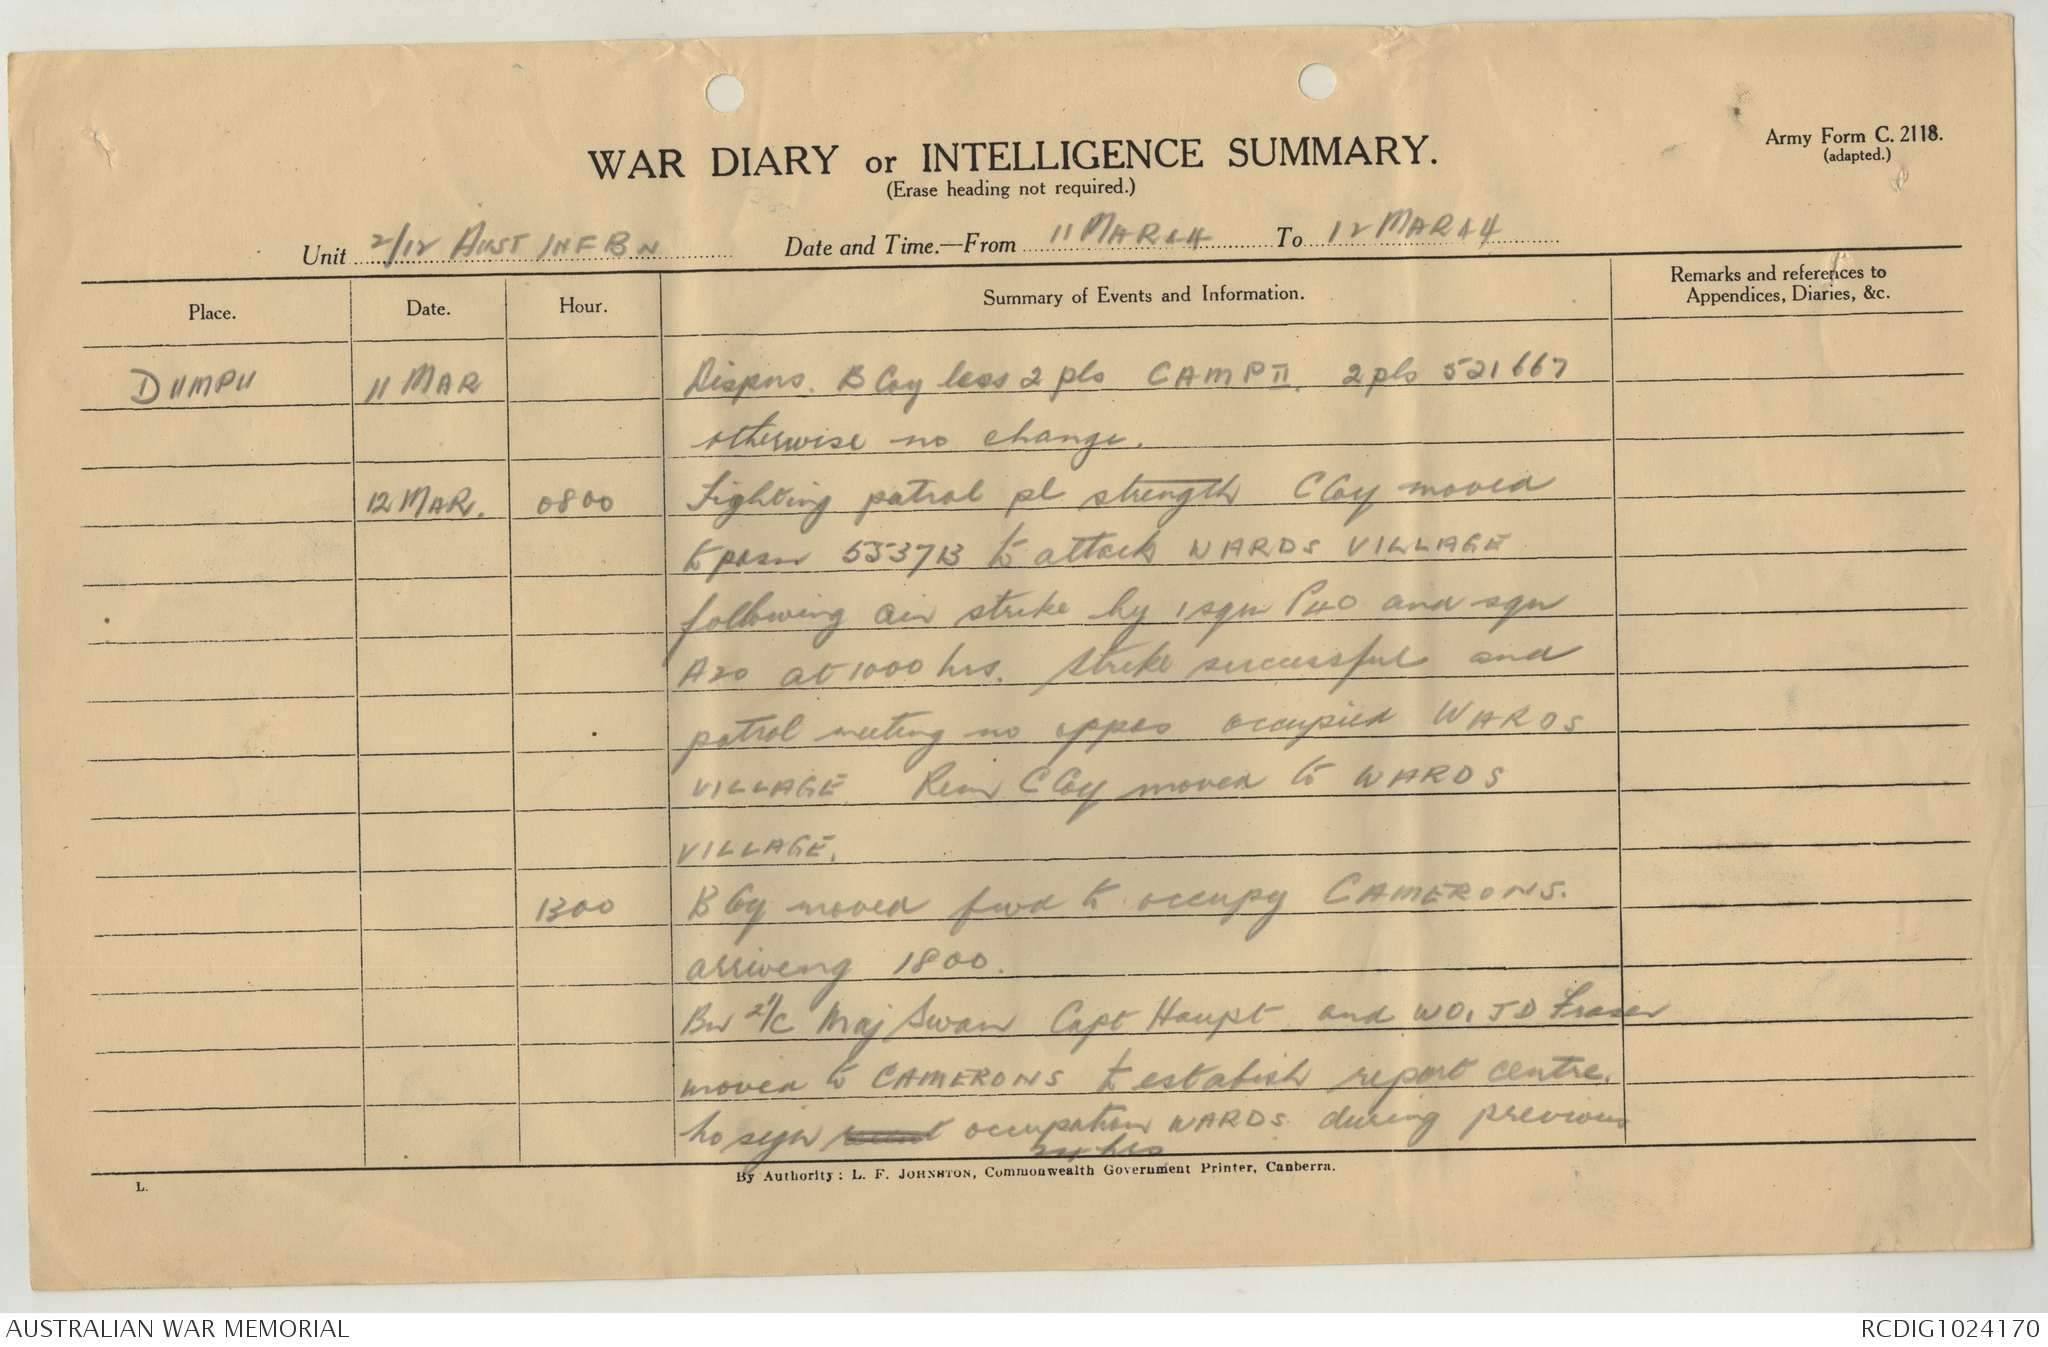 WAR DIARY or INTELLIGENCE SUMMARY.
(Erase heading not required.)
Army Form C. 2118.
(adapted.)
Unit 2/12 AUST INF BN Date and Time.—From 11 MAR 44 To 12 MAR 44
Place. Date. Hour. Summary of Events and Information. Remarks and references to Appendices, Diaries, &c.
DUMPU 11 MAR Dispns. B Coy less 2 pls CAMP II. 2 pls 521667
otherwise no change.
12 MAR. 0800 Fighting patrol pl strength C Coy moved
to posn 553713 to attack WARDS VILLAGE
following air strike by 1 sqn P40 and sqn
A20 at 1000 hrs. Strike successful and
patrol meeting no oppos occupied WARDS
VILLAGE. Rem C Coy moved to WARDS
VILLAGE.
1300 B Coy moved fwd to occupy CAMERONS.
arriving 1800.
Bn 2i/c Maj Swan Capt Haupt and WO1 J D Fraser
moved to CAMERONS to establish report centre.
No sign occupation WARDS during previous
24 hrs
By Authority: L. F. JOHNSTON, Commonwealth Government Printer, Canberra.
L.
AUSTRALIAN WAR MEMORIAL
RCDIG1024170